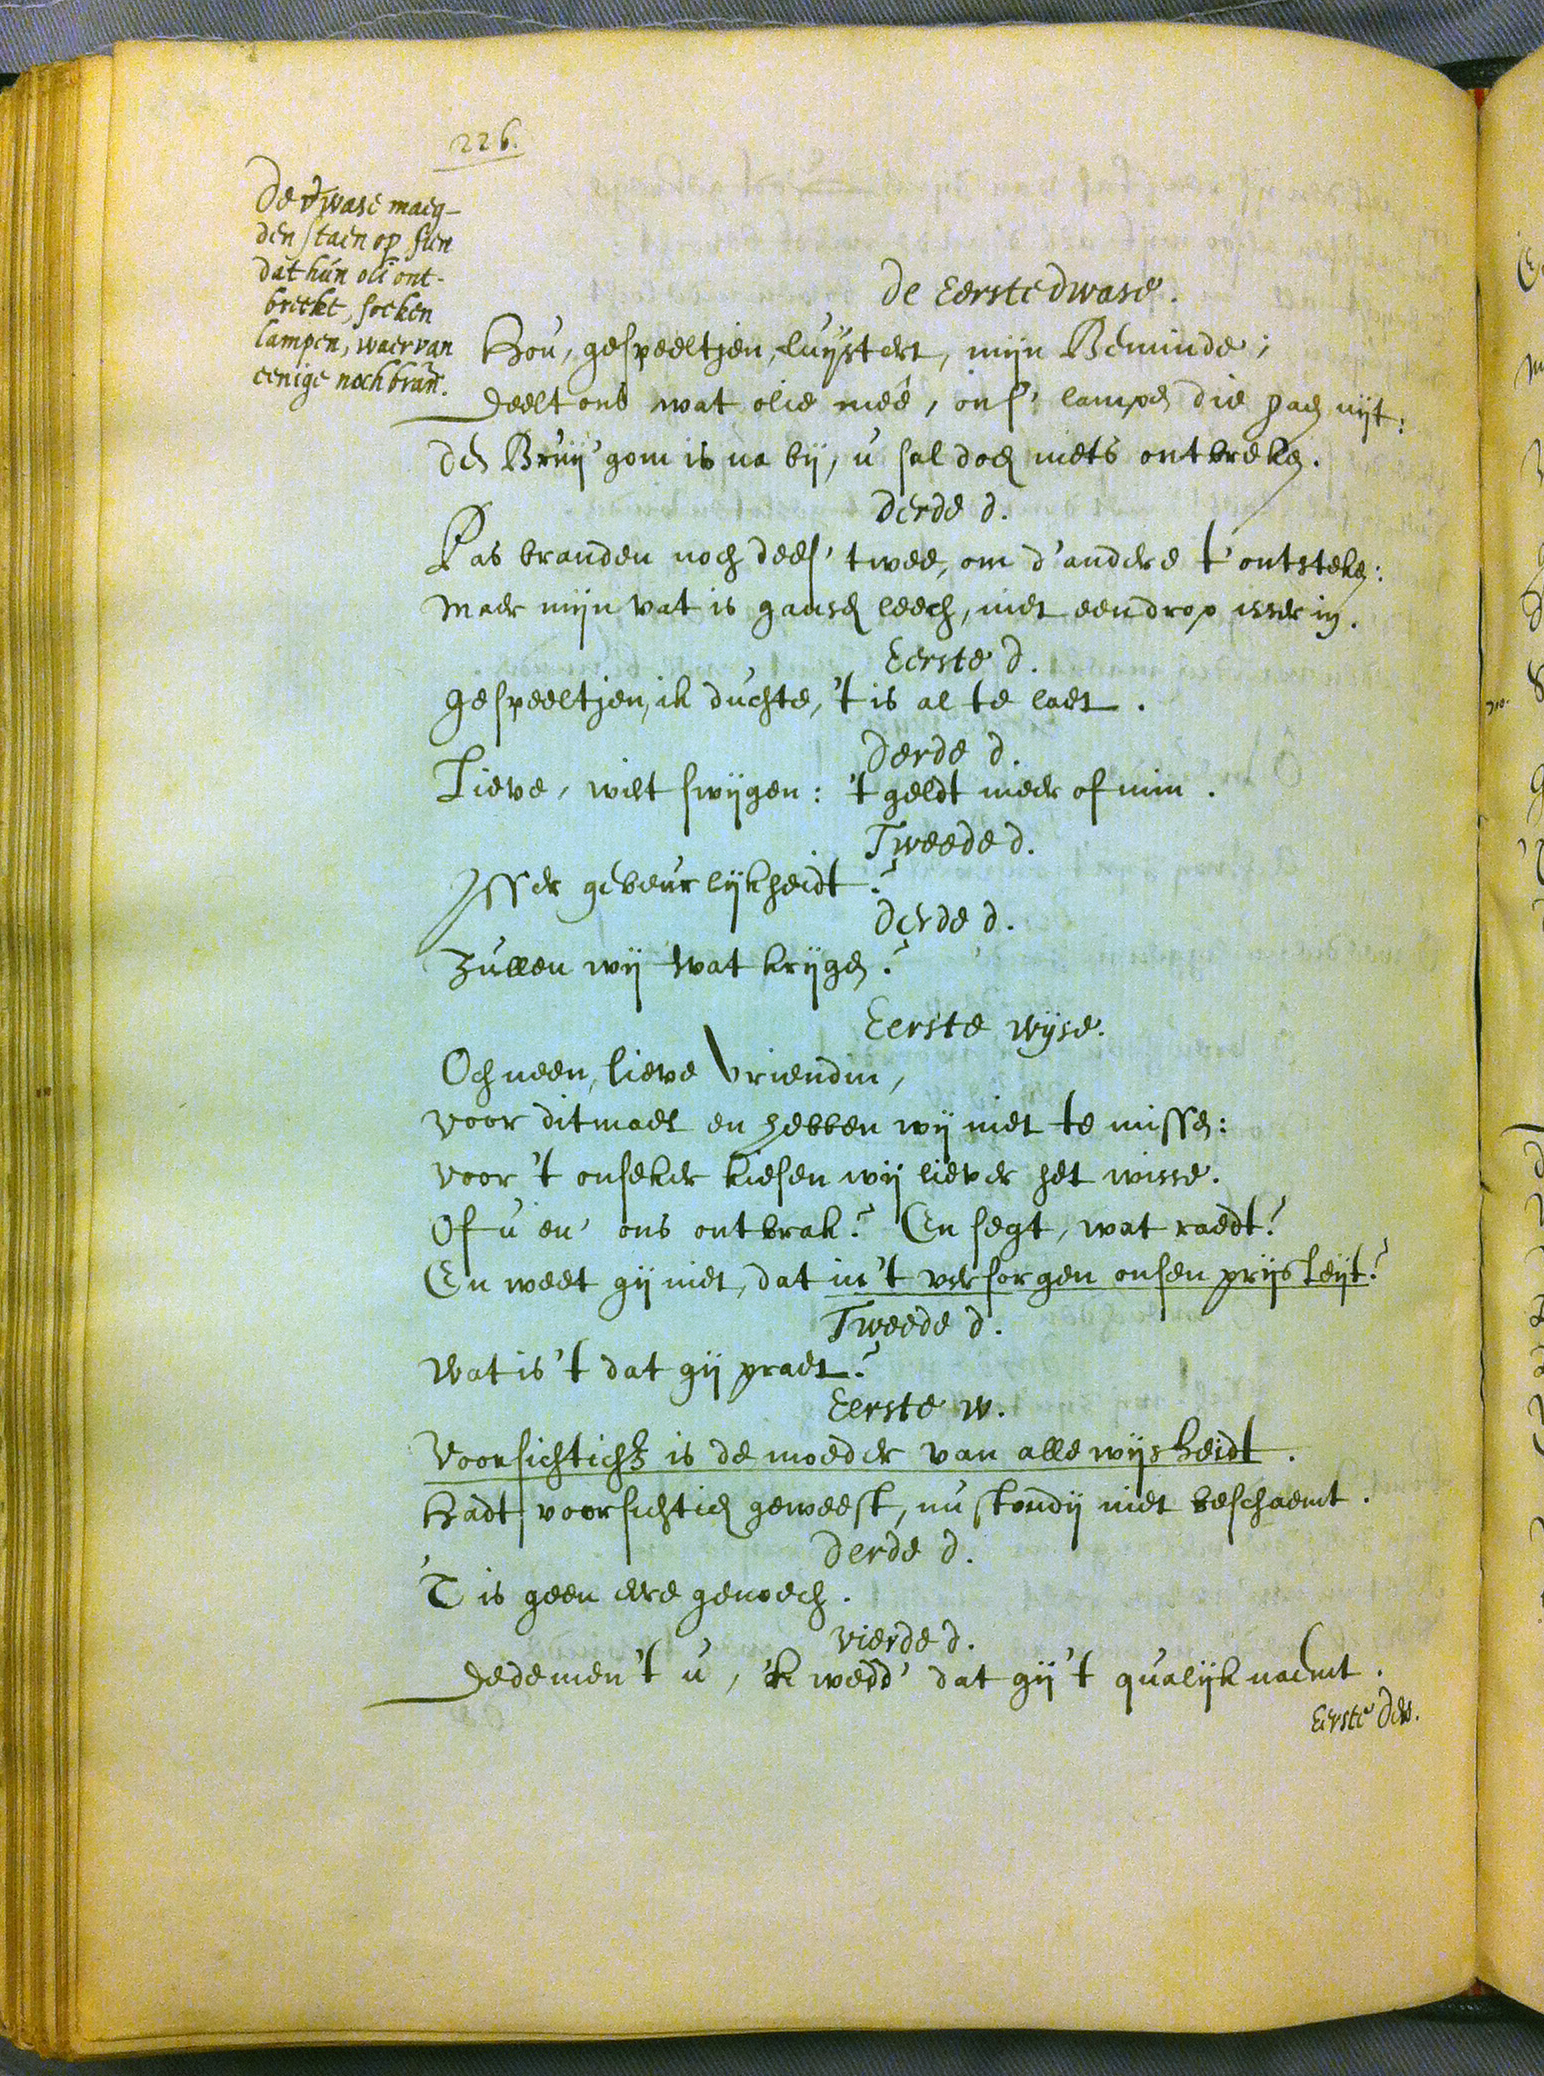 226.
De dwase maeg-
den staen op sien
dat hún oli ont-
breekt, soeken
lampen, waer van
eenige noch bran̄.
De Eerste dwase.
Hoú, gespeeltjen, lúijstert, mijn Beminde;
Deelt ons wat olie meê, ons' lampen die gaen uijt:
Den Brúij'gom is na bij, ú sal doen niets ontbreken.
Derde d.
Pas branden noch dees' twee, om d'andere t'ontsteken:
Maer mijn vat is gansch leech, niet een drop isser in.
Eerste d.
Gespeeltjen, ik dúchte, 't is al te laet.
Derde d.
Lieve, wilt swijgen: 't geldt meer of min.
Tweede d.
Isser gebeurlijkheidt?
Derde d.
Zúllen wij wat krijgen?
Eerste wijse.
Och neen, lieve vriendin,
Voor ditmael en hebben wij niet te missen:
Voor 't onseker kiesen wij liever het wisse.
Of ú en' ons ontbrak? En segt, wat raedt?
En weet gij niet, dat in't versorgen onsen prijs leijt?
Tweede d.
Wat is't dat gij praet?
Eerste w.
Voorsichtich is de moeder van alle wijsheidt.
Hadt voorsichtich geweest, nú stondij niet beschaemt.
Derde d.
'T is geen eere genoech.
Vierde d.
Dede men't ú, 'k wedd' dat gij't qualijk naemt.
Eerste